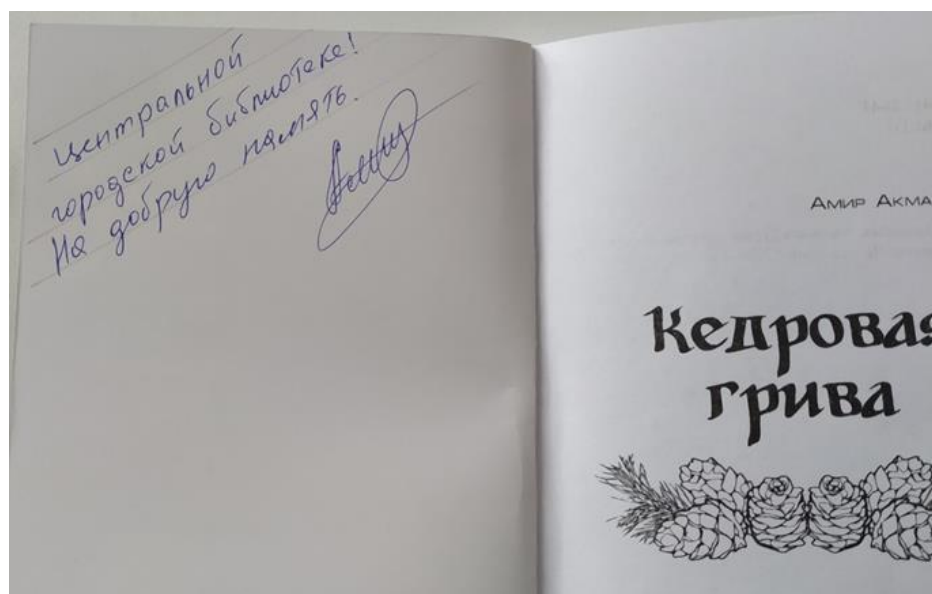 Центральной
городской библиотеке!
На добрую память.
Амир Акма
Кедровая
грива